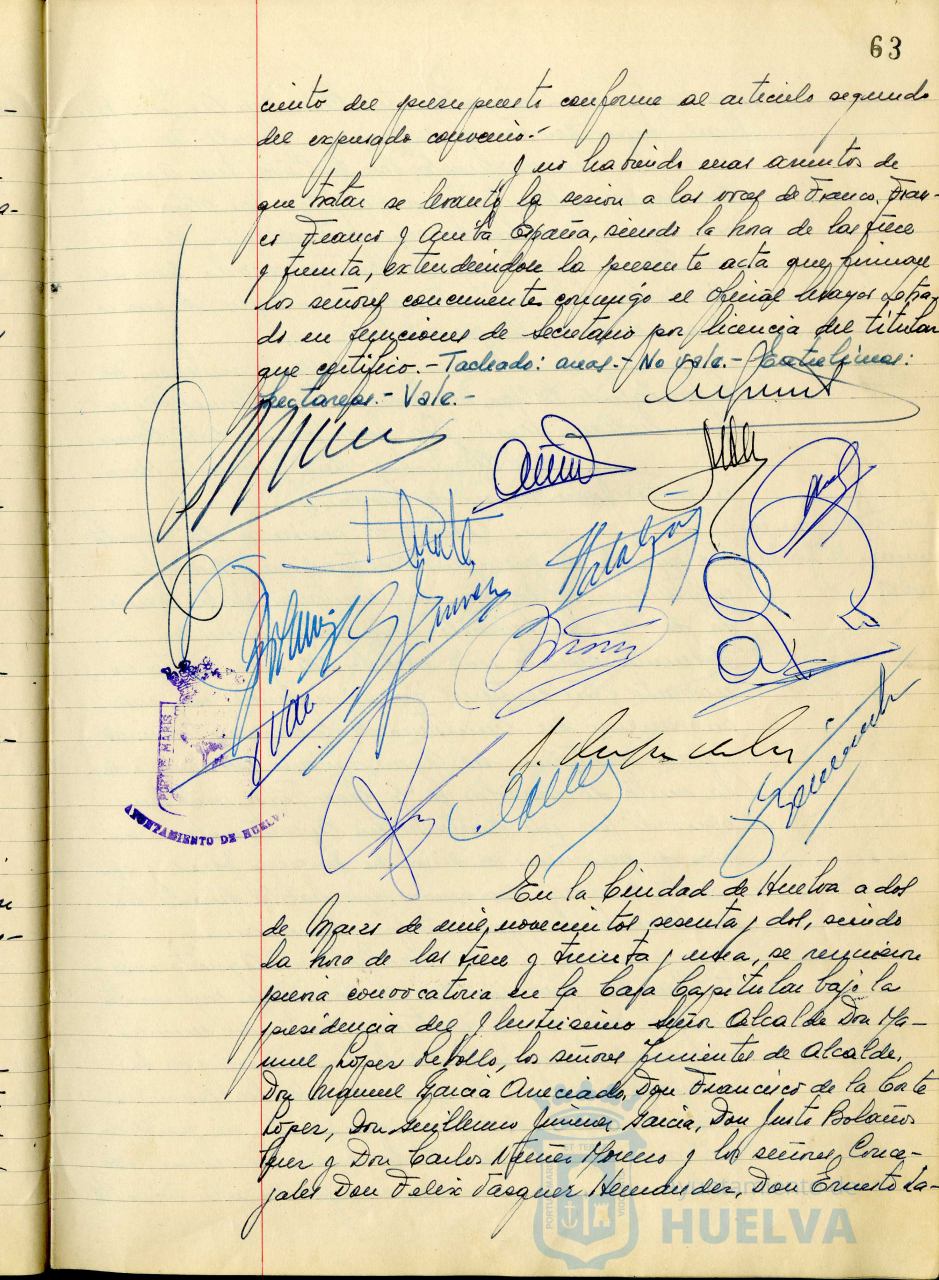 63
ciento del presupuesto conforme al articulo segundo
del expresado convenio.-
Y no habiendo mas asuntos de
que tratar se levantó la sesion a las voces de Franco, Fran-
co Franco y Arriba España, siendo la hora de las trece
y treinta, extendiendose la presente acta que firman
los señores concurrentes conmigo el Oficial Mayor Letra-
do en funciones de Secretario por licencia del titular
que certifico.- Tachado: areas.- No vale.- Entrelineas:
hectareas.- Vale.-
PORTUS MARIS
AYUNTAMIENTO DE HUELVA
En la Ciudad de Huelva a dos
de Marzo de mil novecientos sesenta y dos, siendo
la hora de las trece y treinta y una, se reunieron
previa convocatoria en la Casa Capitular bajo la
presidencia del Ilustrisimo señor Alcalde Don Ma-
nuel López Rebollo, los señores Tenientes de Alcalde,
Don Miguel Garcia Don Francisco de la Corte
López, Don Guillermo Jimenez Garcia, Don Justo Bolaños
y Don Carlos Nuñez Moreno y los señores Conce-
jales Don Felix Vasquez Hernandez, Don Ernesto La-
Ayuntamiento de
HUELVA